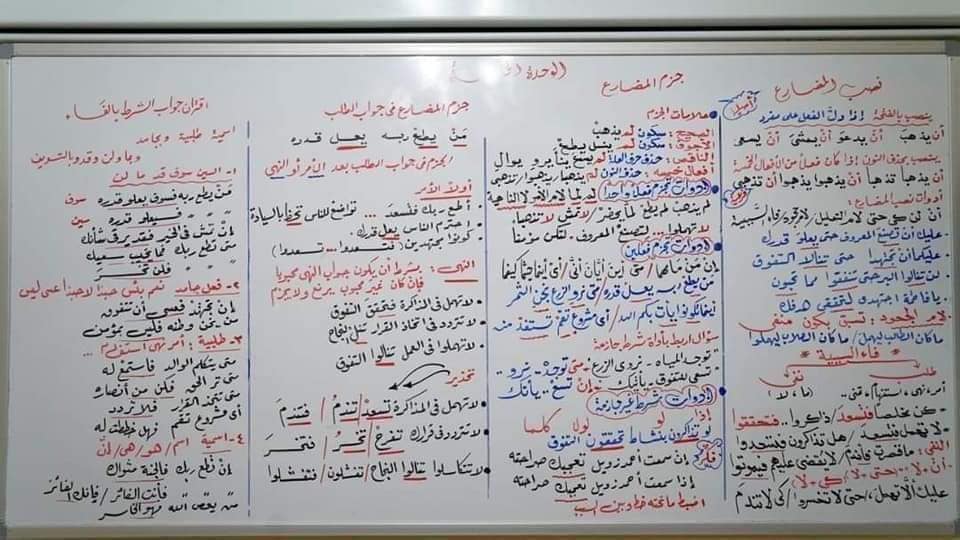 الوحدة
نصب المضارع
أصلي
ينصب بالفتحة إذا دل الفعل على مفرد
أن يذهبَ أن يدعوَ أن يمشيَ أن يسعى
ينصب بحذف النون إذا كان فعلاً من الأفعال الخمسة
أن يذهبا تذهبا أن يذهبوا تذهبوا أن تذهبي
أدوات نصب المضارع:
أن لن كي حتى لام التعليل / لام الجحود / فاء السببية
عليك أن تصنع المعروف حتى يعلو قدرك
عليكما أن تجتهدا حتى تنالا التفوق
لن تنالوا البر حتى تنفقوا مما تحبون
يا فاطمة اجتهدي لتحققي هدفك
لام الجحود: تسبق بكون منفي
ما كان الطالب ليهمل / ما كان الطلاب ليهملوا
فاء السببية
طلب
نفي
أمر، نهي، استفهام، تمني
(ما / لا)
كن مخلصاً فتسعد / ذاكروا .. فتتفوقوا
لا تهمل فتندم / هل تذاكرون فينجحوا
النفي: ما قصرت فأندم / لا يُقضى عليهم فيموتوا
أن + لا .. حتى + لا / كي + لا
عليك ألا تهمل / حتى لا تخسروا / كي لا تندم
جزم المضارع
علامات الجزم
الصحيح: سكون لم يذهبْ
الأجوف: سكون لم يَنَلْ يطع
الناقص: حذف حرف العلة لم
أفعال خمسة: حذف النون لم يذهبا
أدوات تجزم فعلاً واحداً لم لما لام الأمر لا الناهية
لم يذهب لم يطع
لا تهملوا .. لتصنع المعروف. لتكن مؤمناً
أدوات تجزم فعلين
إن من ما مهما / متى أين أيان أنّى / أي أينما حيثما كيفما
من يطع ربه يعل قدره متى نرو الزرع نجن الثمر
أينما تكونوا يأت بكم الله / أي مشروع تقم تستفد منه
سؤال اربط بأداة شرط جازمة:
توجد المياه - نروي الزرع - متى توجد - نرو ..
تسعى للتفوق - يأتيك إن تسع - يأتك
أدوات شرط غير جازمة
إذا لو لولا كلما
لو تذاكرون بنشاط تحققون التفوق
إن سمعت أحمد زويل تعجبك صراحته
إذا سمعت أحمد زويل تعجبك صراحته
اضبط ما تحته خط وبين السبب
جزم المضارع في جواب الطلب
مَنْ يطعْ ربه يعل قدره
يجزم في جواب الطلب بعد الأمر أو النهي
أولاً الأمر
أطع ربك فتسعد ... تواضع للناس تحظ بالسيادة
احترم الناس يعل قدرك
كونوا مجتهدين (فتسعدوا ... تسعدوا)
النهي: بشرط أن يكون جواب النهي محبوباً
فإن كان غير محبوب يرفع ولا يجزم
لا تهمل في المذاكرة فتحقق التفوق
لا تتردد في اتخاذ القرار تنل النجاح
لا تهملوا في العمل تنالوا التفوق
تحذير
لا تهمل في المذاكرة تسعد / تندمُ / فتندمَ
لا تتردد في قرارك تنفرج / تخسرُ / فتخسرَ
لا تتكاسلوا تنالوا النجاح / تفشلون / فتفشلوا
اقتران جواب الشرط بالفاء
اسمية طلبية وبجامد
وبما ولن وقد وبالتسويف
١- السين سوف قد ما لن
مَن يطع ربه فسوف يعلو قدره سوف
" " " فسيعلو قدره سين
إن تسع في الخير فقد يرق شأنك
متى تطع ربك فما يخيب سعيك
" " " فلن تخسرَ
٢- فعل جامد نعم بئس حبذا لا حبذا عسى ليس
إن تجتهد فعسى أن تتفوق
من يخن وطنه فليس بمؤمن
٣- طلبية: أمر نهي استفهام ...
متى يتكلم الوالد فاستمع له
متى تر الحق فكن من أنصاره
متى تتخذ القرار فلا تردد
أي مشروع تقم فهل خططت له
٤- اسمية اسم / هو / هي / إنّ
إن تطع ربك فالجنة مثواك
فأنت الفائز / فإنك الفائز
من يعص الله فهو الخاسر